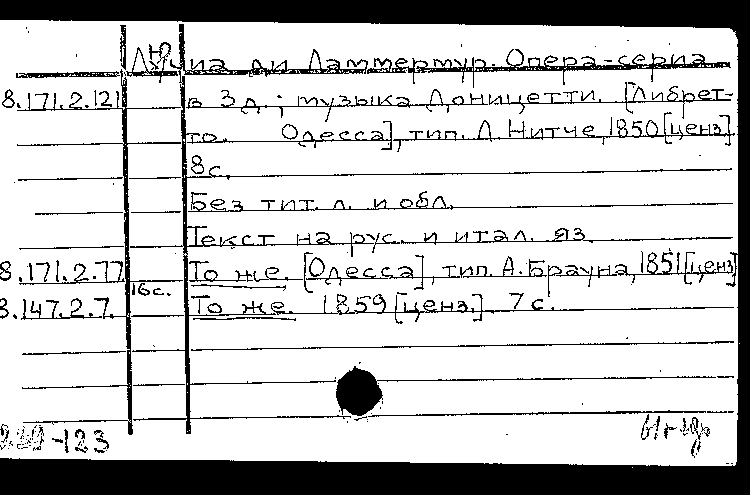 Лючиа ди Ламмермур. Опера-сериа
8.171.2.121 в 3 д.; музыка Доницетти. [Либрет-
то. Одесса], тип. Л. Нитче, 1850 [ценз].
8 с.
Без тит. л. и обл.
Текст на рус. и итал. яз.
8.171.2.77 То же. [Одесса], тип. А. Брауна, 1851 [ценз]
16 с.
8.147.2.7. То же. 1859 [ценз.]. 7 с.
-123